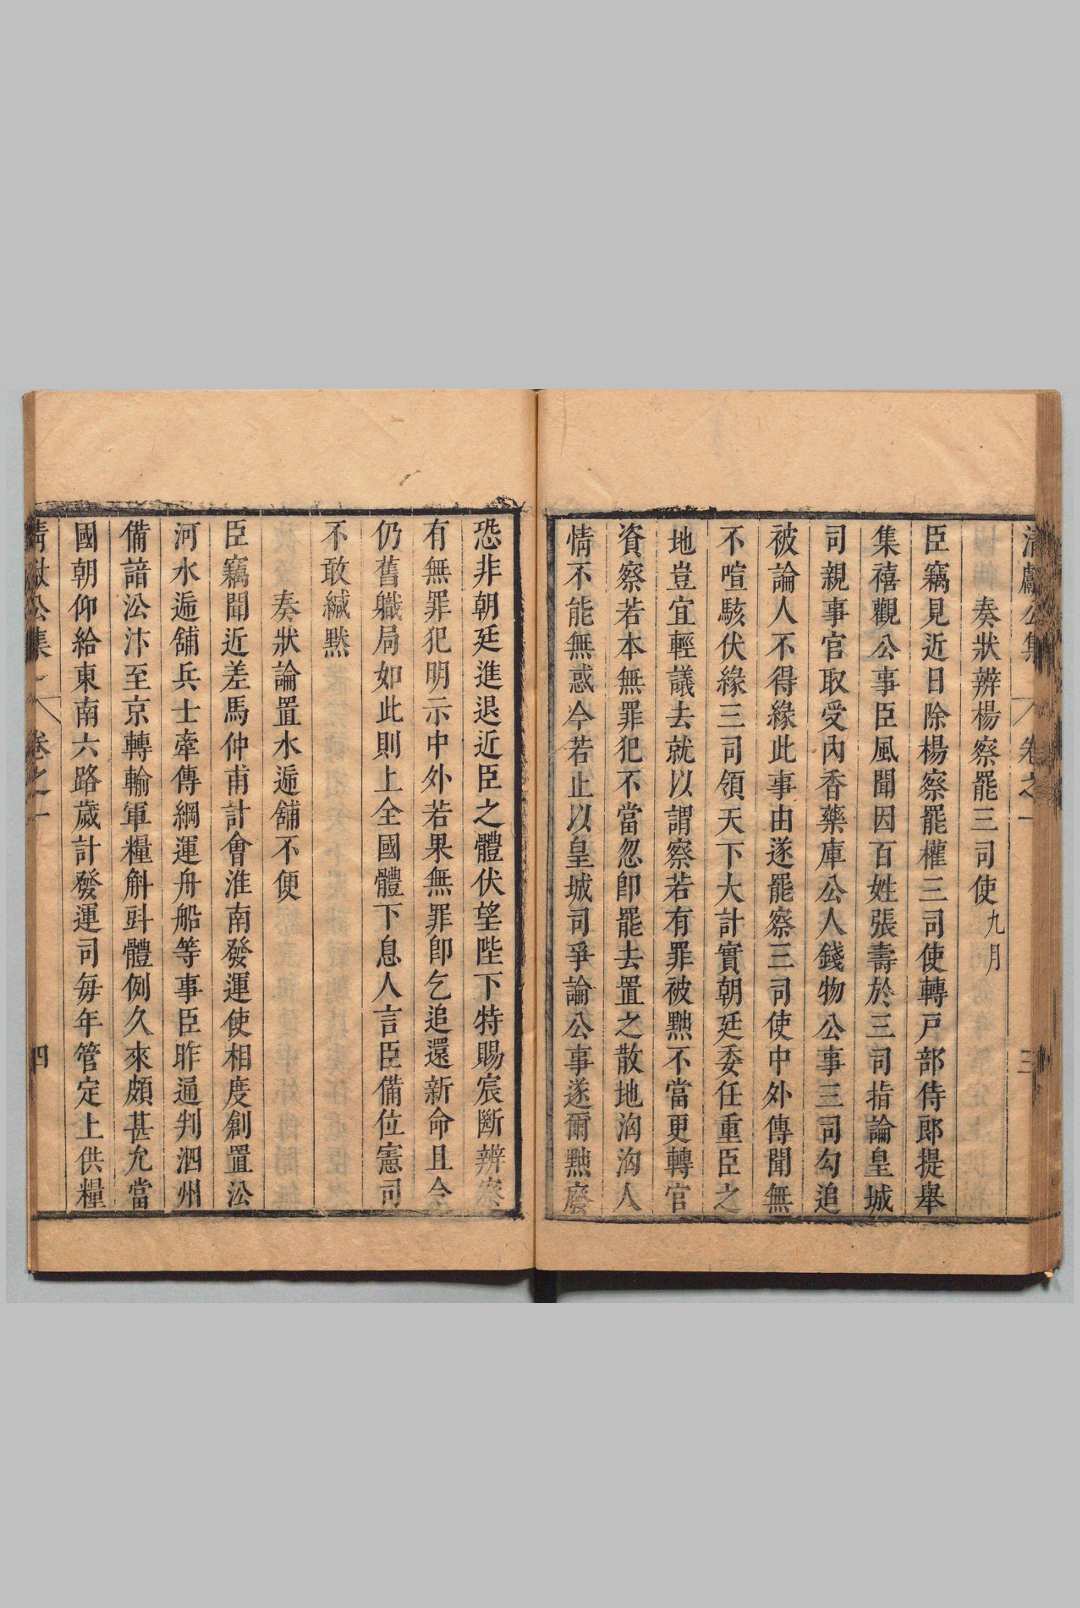 清獻公集 卷之一 三
奏狀辨楊察罷三司使九月
臣竊見近日除楊察罷權三司使轉戸部侍郎提舉
集禧觀公事臣風聞因百姓張壽於三司指論皇城
司親事官取受內香藥庫公人錢物公事三司勾追
被論人不得緣此事由遂罷察三司使中外傳聞無
不喧駭伏緣三司領天下大計實朝廷委任重臣之
地豈宜輕議去就以謂察若有罪被黜不當更轉官
資察若本無罪犯不當忽卽罷去置之散地洶洶人
情不能無惑今若止以皇城司爭論公事遂爾黜廢
恐非朝廷進退近臣之體伏望陛下特賜宸斷辨察
有無罪犯明示中外若果無罪卽乞追還新命且令
仍舊軄局如此則上全國體下息人言臣備位憲司
不敢緘默
奏狀論置水遞舖不便
臣竊聞近差馬仲甫計會淮南發運使相度創置㳂
河水遞舖兵士牽傳綱運舟船等事臣昨通判泗州
備諳㳂汴至京轉輸軍糧斛㪷體例久來頗甚允當
國朝仰給東南六路歲計發運司每年管定上供糧
清獻公集 卷之一 四